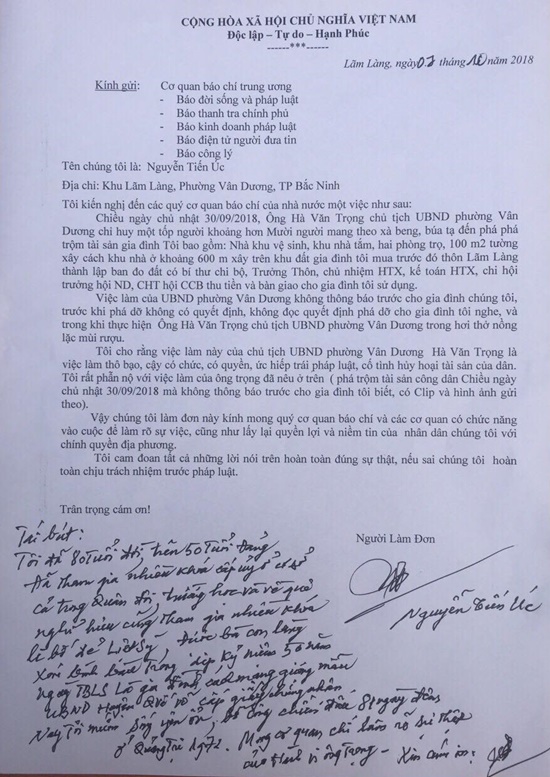 CỘNG HÒA XÃ HỘI CHỦ NGHĨA VIỆT NAM
Độc lập – Tự do – Hạnh Phúc
------***------
Lãm Làng, ngày 02 tháng 10 năm 2018
Kính gửi: Cơ quan báo chí trung ương
- Báo đời sống và pháp luật
- Báo thanh tra chính phủ
- Báo kinh doanh pháp luật
- Báo điện tử người đưa tin
- Báo công lý
Tên chúng tôi là: Nguyễn Tiến Úc
Địa chỉ: Khu Lãm Làng, Phường Vân Dương, TP Bắc Ninh
Tôi kiến nghị đến các quý cơ quan báo chí của nhà nước một việc như sau:
Chiều ngày chủ nhật 30/09/2018, Ông Hà Văn Trọng chủ tịch UBND phường Vân
Dương chỉ huy một tốp người khoảng hơn Mười người mang theo xà beng, búa tạ đến phá phá
trộm tài sản gia đình Tôi bao gồm: Nhà khu vệ sinh, khu nhà tắm, hai phòng trọ, 100 m2 tường
xây cách khu nhà ở khoảng 600 m xây trên khu đất gia đình tôi mua trước đó thôn Lãm Làng
thành lập ban đo đất có bí thư chi bộ, Trưởng Thôn, chủ nhiệm HTX, kế toán HTX, chi hội
trưởng hội ND, CHT hội CCB thu tiền và bàn giao cho gia đình tôi sử dụng.
Việc làm của UBND phường Vân Dương không thông báo trước cho gia đình chúng tôi,
trước khi phá dỡ không có quyết định, không đọc quyết định phá dỡ cho tôi nghe, và
trong khi thực hiện Ông Hà Văn Trọng chủ tịch UBND phường Vân Dương trong hơi thở nồng
lặc mùi rượu.
Tôi cho rằng việc làm này của chủ tịch UBND phường Vân Dương Hà Văn Trọng là
việc làm thô bạo, cậy có chức, có quyền, ức hiếp trái pháp luật, cố tình hủy hoại tài sản của dân.
Tôi rất phẫn nộ với việc làm của ông trọng đã nêu ở trên ( phá trộm tài sản công dân Chiều ngày
chủ nhật 30/09/2018 mà không thông báo trước cho gia đình tôi biết, có Clip và hình ảnh gửi
theo).
Vậy chúng tôi làm đơn này kính mong quý cơ quan báo chí và các cơ quan có chức năng
vào cuộc để làm rõ sự việc, cũng như lấy lại quyền lợi và niềm tin của nhân dân chúng tôi với
chính quyền địa phương.
Tôi cam đoan tất cả những lời nói trên hoàn toàn đúng sự thật, nếu sai chúng tôi hoàn
toàn chịu trách nhiệm trước pháp luật.
Trân trọng cám ơn!
Người Làm Đơn
Nguyễn Tiến Úc
Tái bút:
Tôi đã 80 tuổi đời trên 50 tuổi Đảng
Đã tham gia nhiều khóa cấp ủy ở cơ sở
cả trong Quân đội, trường học và về quê
nghỉ hưu cũng tham gia nhiều khóa
Được bà con làng
dịp kỷ niệm 50 năm
ngày TBLS Là gia đình cách mạng gương mẫu
UBND Huyện Quế võ cấp giấy chứng nhận
Nay tôi muốn sống yên ổn, 81 ngày đêm
ở Quảng Trị 1972. Mong cơ quan chí làm rõ sự thật
của hành vi ông trọng - Xin cám ơn: